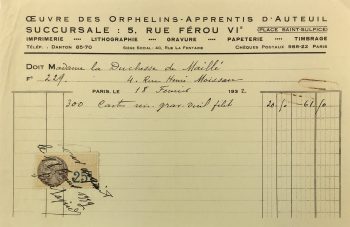 ŒUVRE DES ORPHELINS-APPRENTIS D'AUTEUIL
SUCCURSALE : 5, RUE FÉROU VIe (PLACE SAINT-SULPICE)
IMPRIMERIE — LITHOGRAPHIE — GRAVURE — PAPETERIE — TIMBRAGE
TÉLÉP. : DANTON 85-70 SIÈGE SOCIAL : 40, RUE LA FONTAINE CHÈQUES POSTAUX 588-22 PARIS
DOIT Madame la Duchesse de Maillé
Fº 229. 4. Rue Henri Moissan
PARIS, LE 18 Février 1932
300 Cartes grav. 20 61 50
25